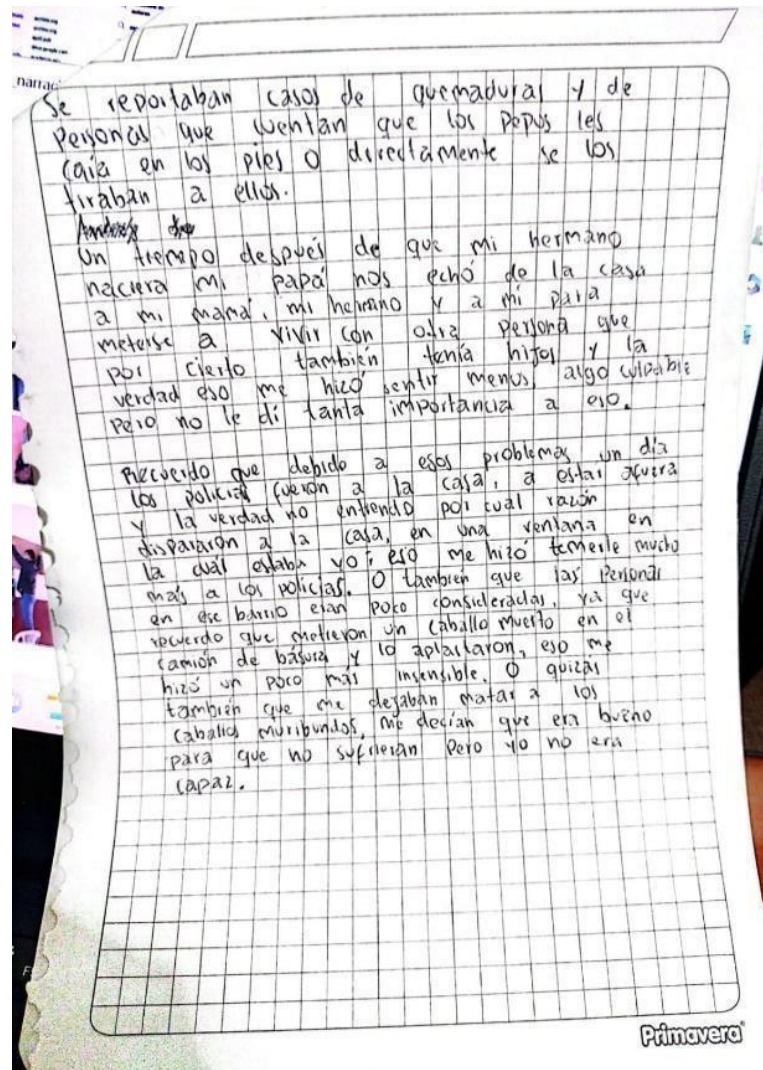 narrac
Se reportaban casos de quemaduras y de
Personas que cuentan que los Pepus les
caía en los pies o directamente se los
tiraban a ellos.
Un tiempo después de que mi hermano
naciera mi papá nos echó de la casa
a mi mamá, mi hermano y a mí para
meterse a vivir con otra persona que
por cierto también tenía hijos y la
verdad eso me hizó sentir menos, algo culpable
pero no le dí tanta importancia a eso.
Recuerdo que debido a esos problemas un día
los policias fueron a la casa, a estar afuera
y la verdad no entiendo por cual razón
dispararon a la casa, en una ventana en
la cuál estaba yo; eso me hizó temerle mucho
más a los policías. O también que las Personas
en ese barrio eran poco consideradas, ya que
recuerdo que metieron un caballo muerto en el
camión de básura y lo aplastaron, eso me
hizó un poco más insensible. O quizás
también que me dejaban matar a los
caballos muribundos, me decían que era bueno
para que no sufrieran pero yo no era
capaz.
Primavera